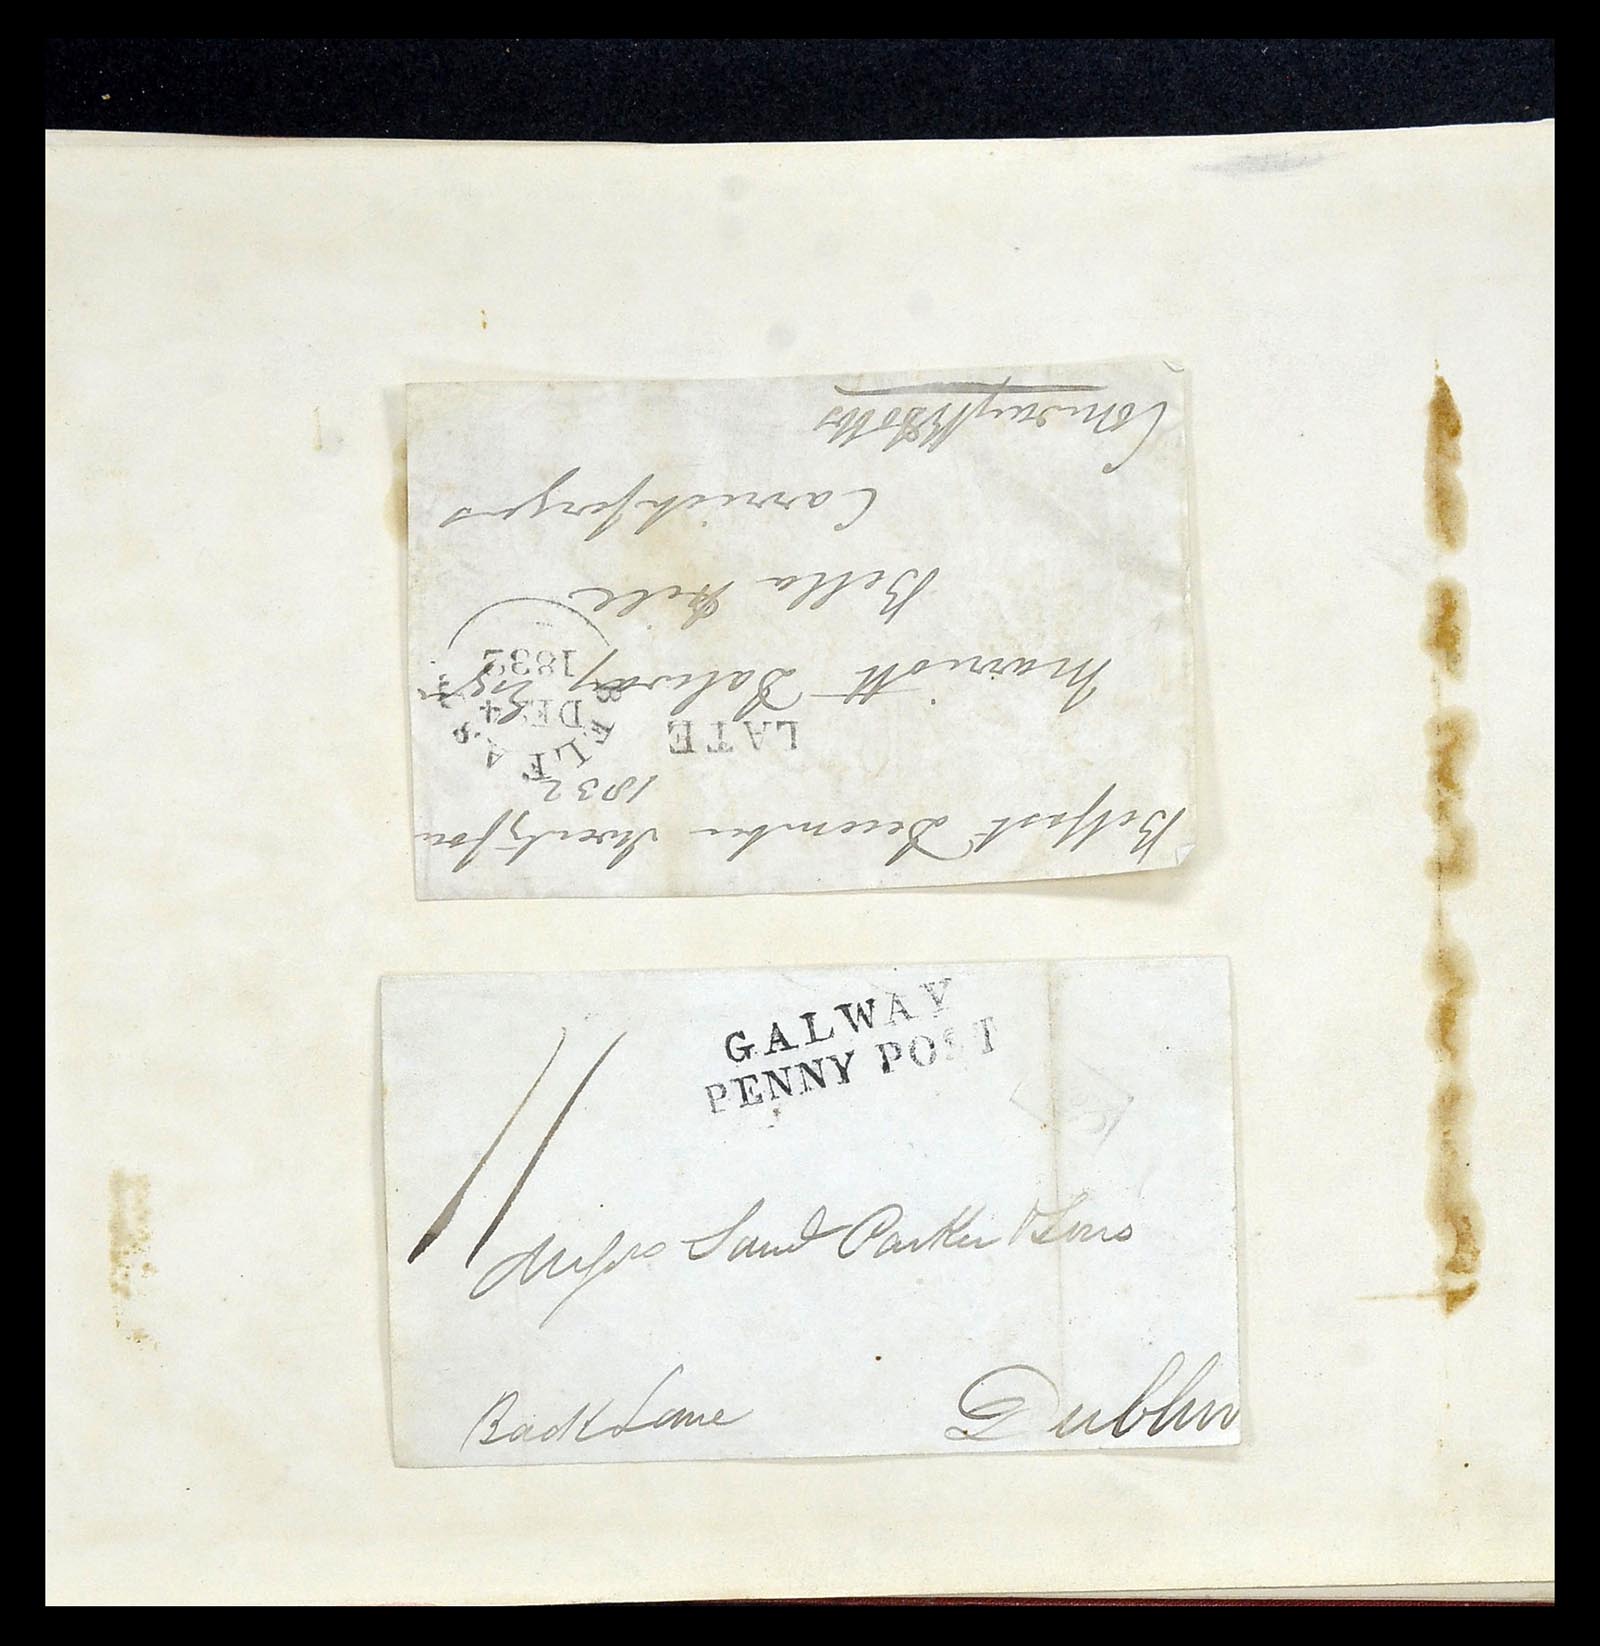 Belfast December twenty four
1832
LATE
BELFAST
DE 24
1832
Marriott Dalway
Bella Hill
Carrickfergus
GALWAY
PENNY POST
11
Messrs Saml Parker & Sons
Back Lane
Dublin